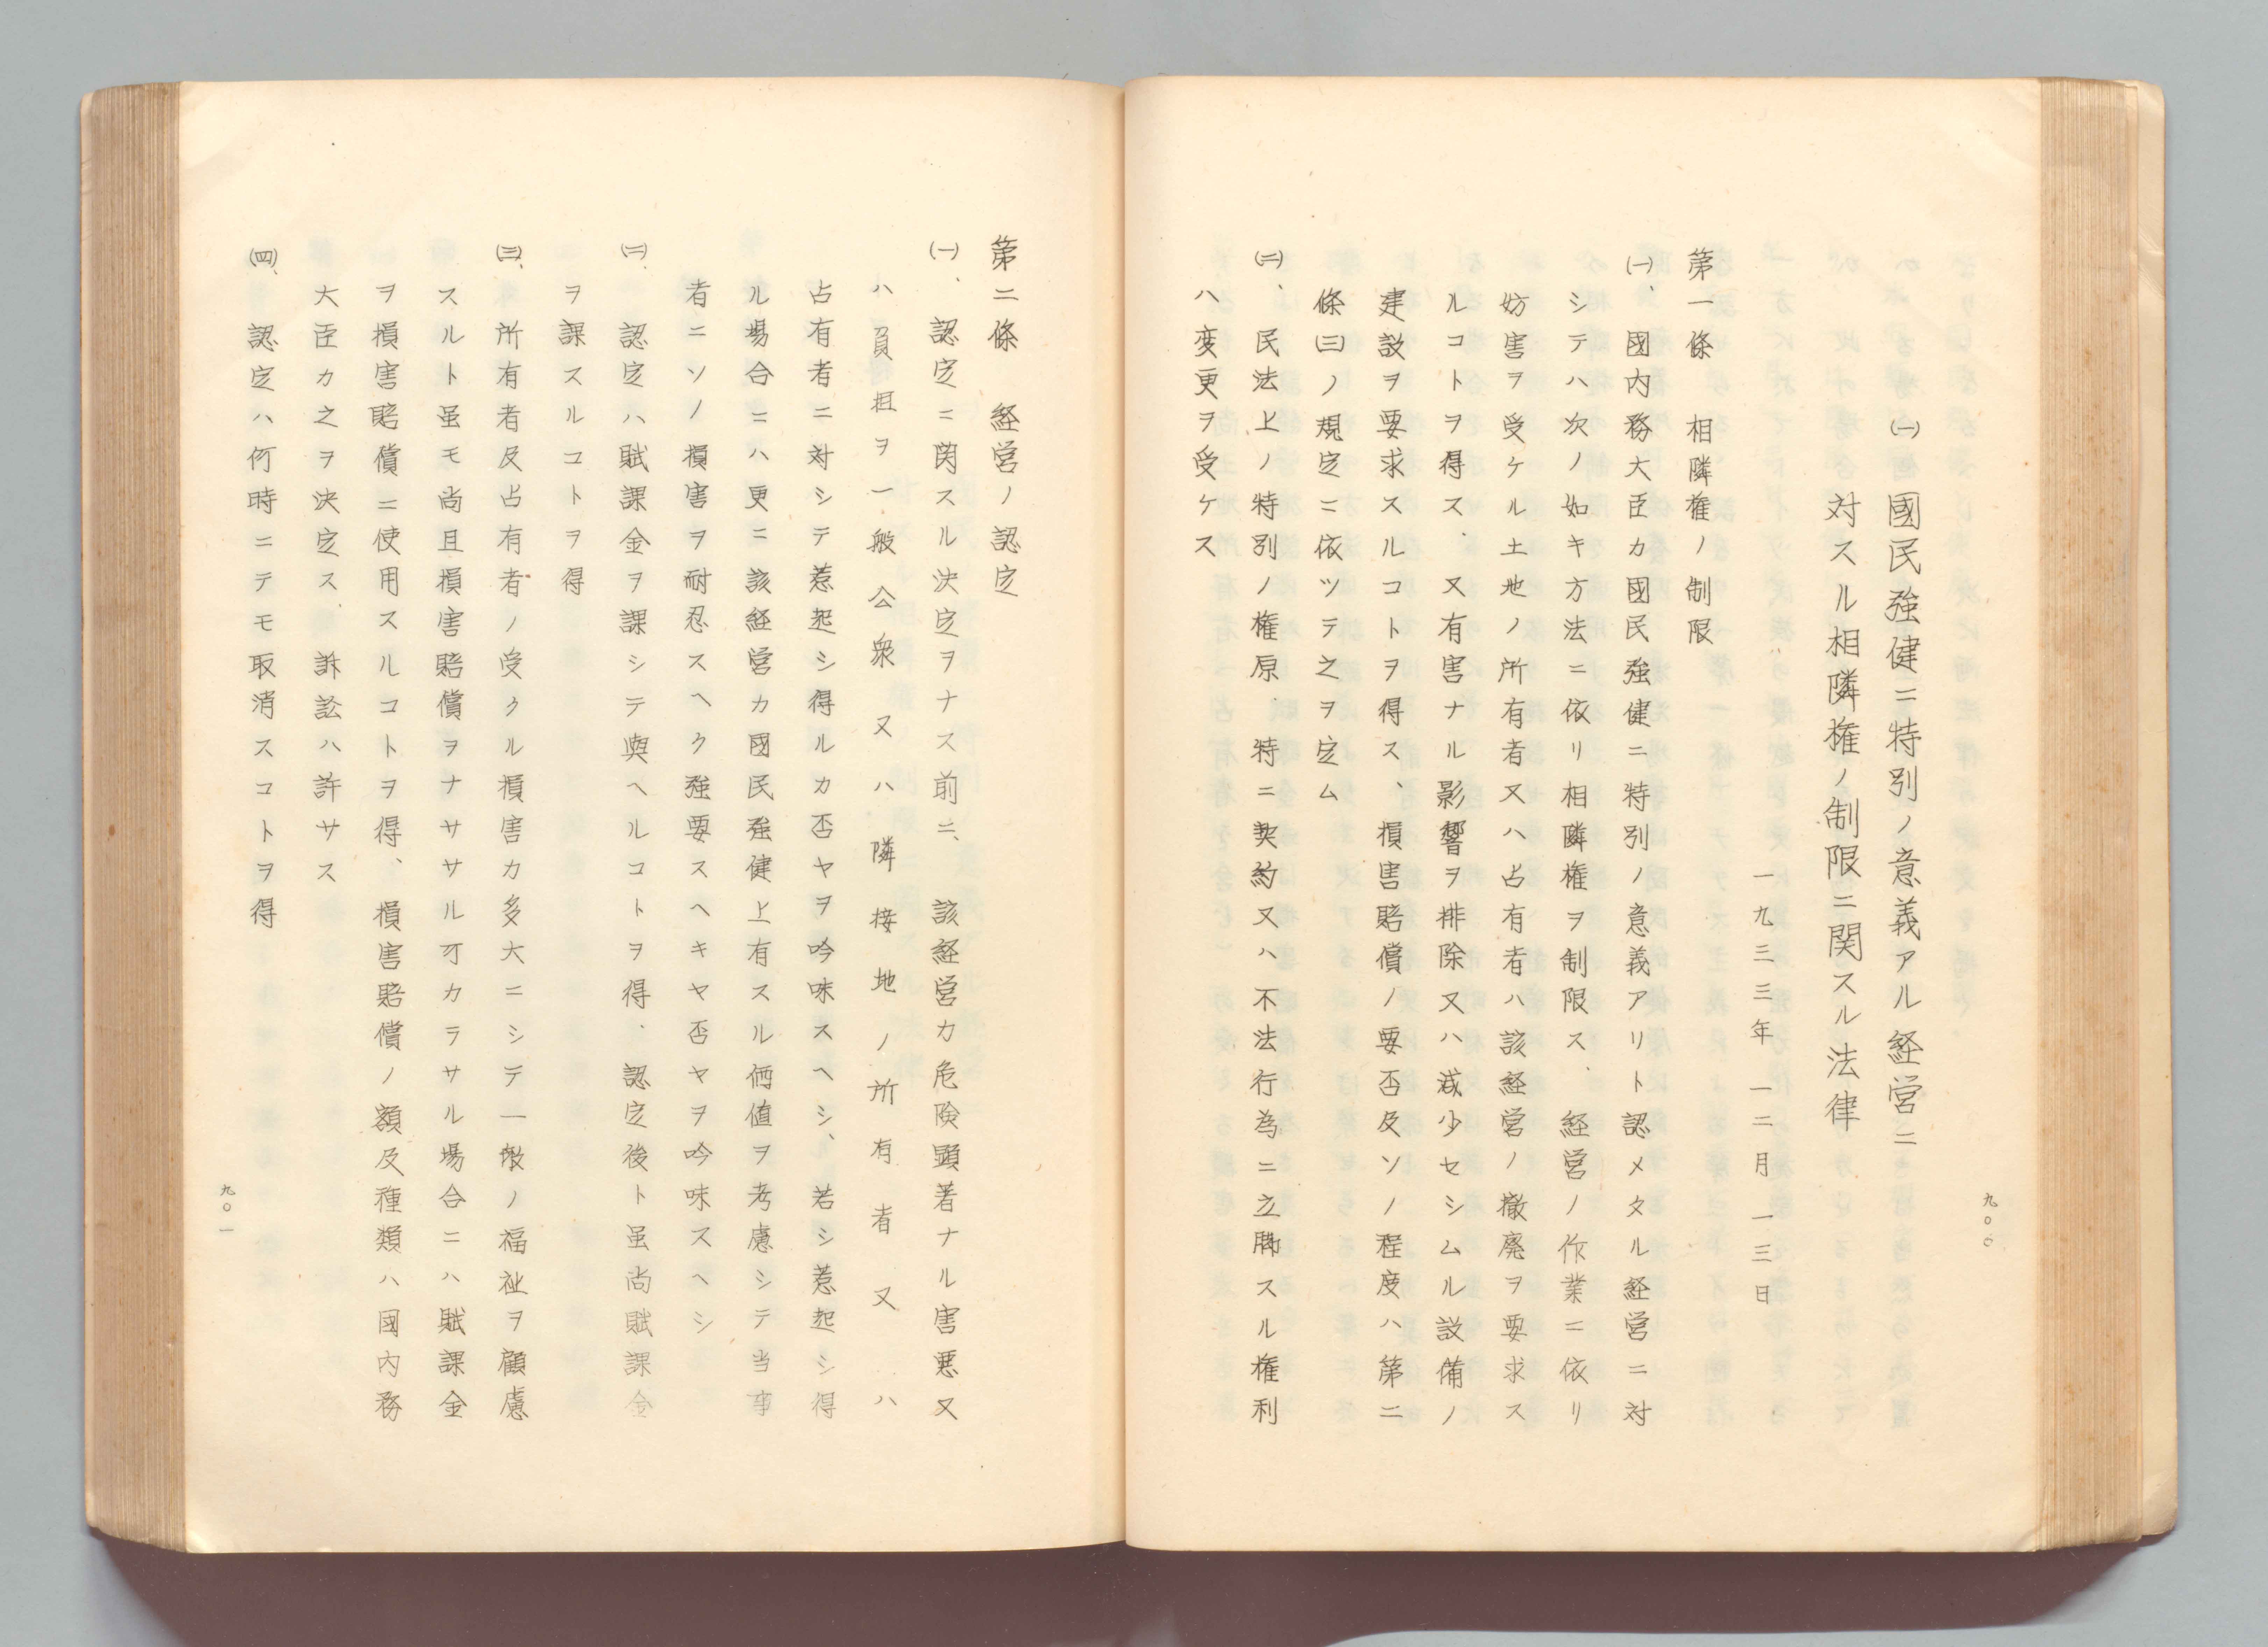 ㈠ 國民強健ニ特別ノ意義アル経営ニ
対スル相隣権ノ制限ニ関スル法律
一九三三年一二月一三日
第一條 相隣権ノ制限
㈠、國内務大臣カ國民強健ニ特別ノ意義アリト認メタル経営ニ対
シテハ次ノ如キ方法ニ依リ相隣権ヲ制限ス、経営ノ作業ニ依リ
妨害ヲ受ケル土地ノ所有者又ハ占有者ハ該経営ノ撤廃ヲ要求ス
ルコトヲ得ス、又有害ナル影響ヲ排除又ハ減少セシムル設備ノ
建設ヲ要求スルコトヲ得ス、損害賠償ノ要否及ソノ程度ハ第二
條㈢ノ規定ニ依ツテ之ヲ定ム
㈡、民法上ノ特別ノ権原、特ニ契約又ハ不法行為ニ立脚スル権利
ハ変更ヲ受ケス
九〇〇
第二條 経営ノ認定
㈠、認定ニ関スル決定ヲナス前ニ、該経営カ危険顕著ナル害悪又
ハ負担ヲ一般公衆又ハ隣接地ノ所有者又ハ
占有者ニ対シテ惹起シ得ルカ否ヤヲ吟味スヘシ、若シ惹起シ得
ル場合ニハ更ニ該経営カ國民強健上有スル価値ヲ考慮シテ当事
者ニソノ損害ヲ耐忍スヘク強要スヘキヤ否ヤヲ吟味スヘシ
㈡、認定ハ賦課金ヲ課シテ與ヘルコトヲ得、認定後ト虽尚賦課金
ヲ課スルコトヲ得
㈢、所有者及占有者ノ受クル損害カ多大ニシテ一般ノ福祉ヲ顧慮
スルト虽モ尚且損害賠償ヲナササル可カラサル場合ニハ賦課金
ヲ損害賠償ニ使用スルコトヲ得、損害賠償ノ額及種類ハ國内務
大臣カ之ヲ決定ス、訴訟ハ許サス
㈣、認定ハ何時ニテモ取消スコトヲ得
九〇一